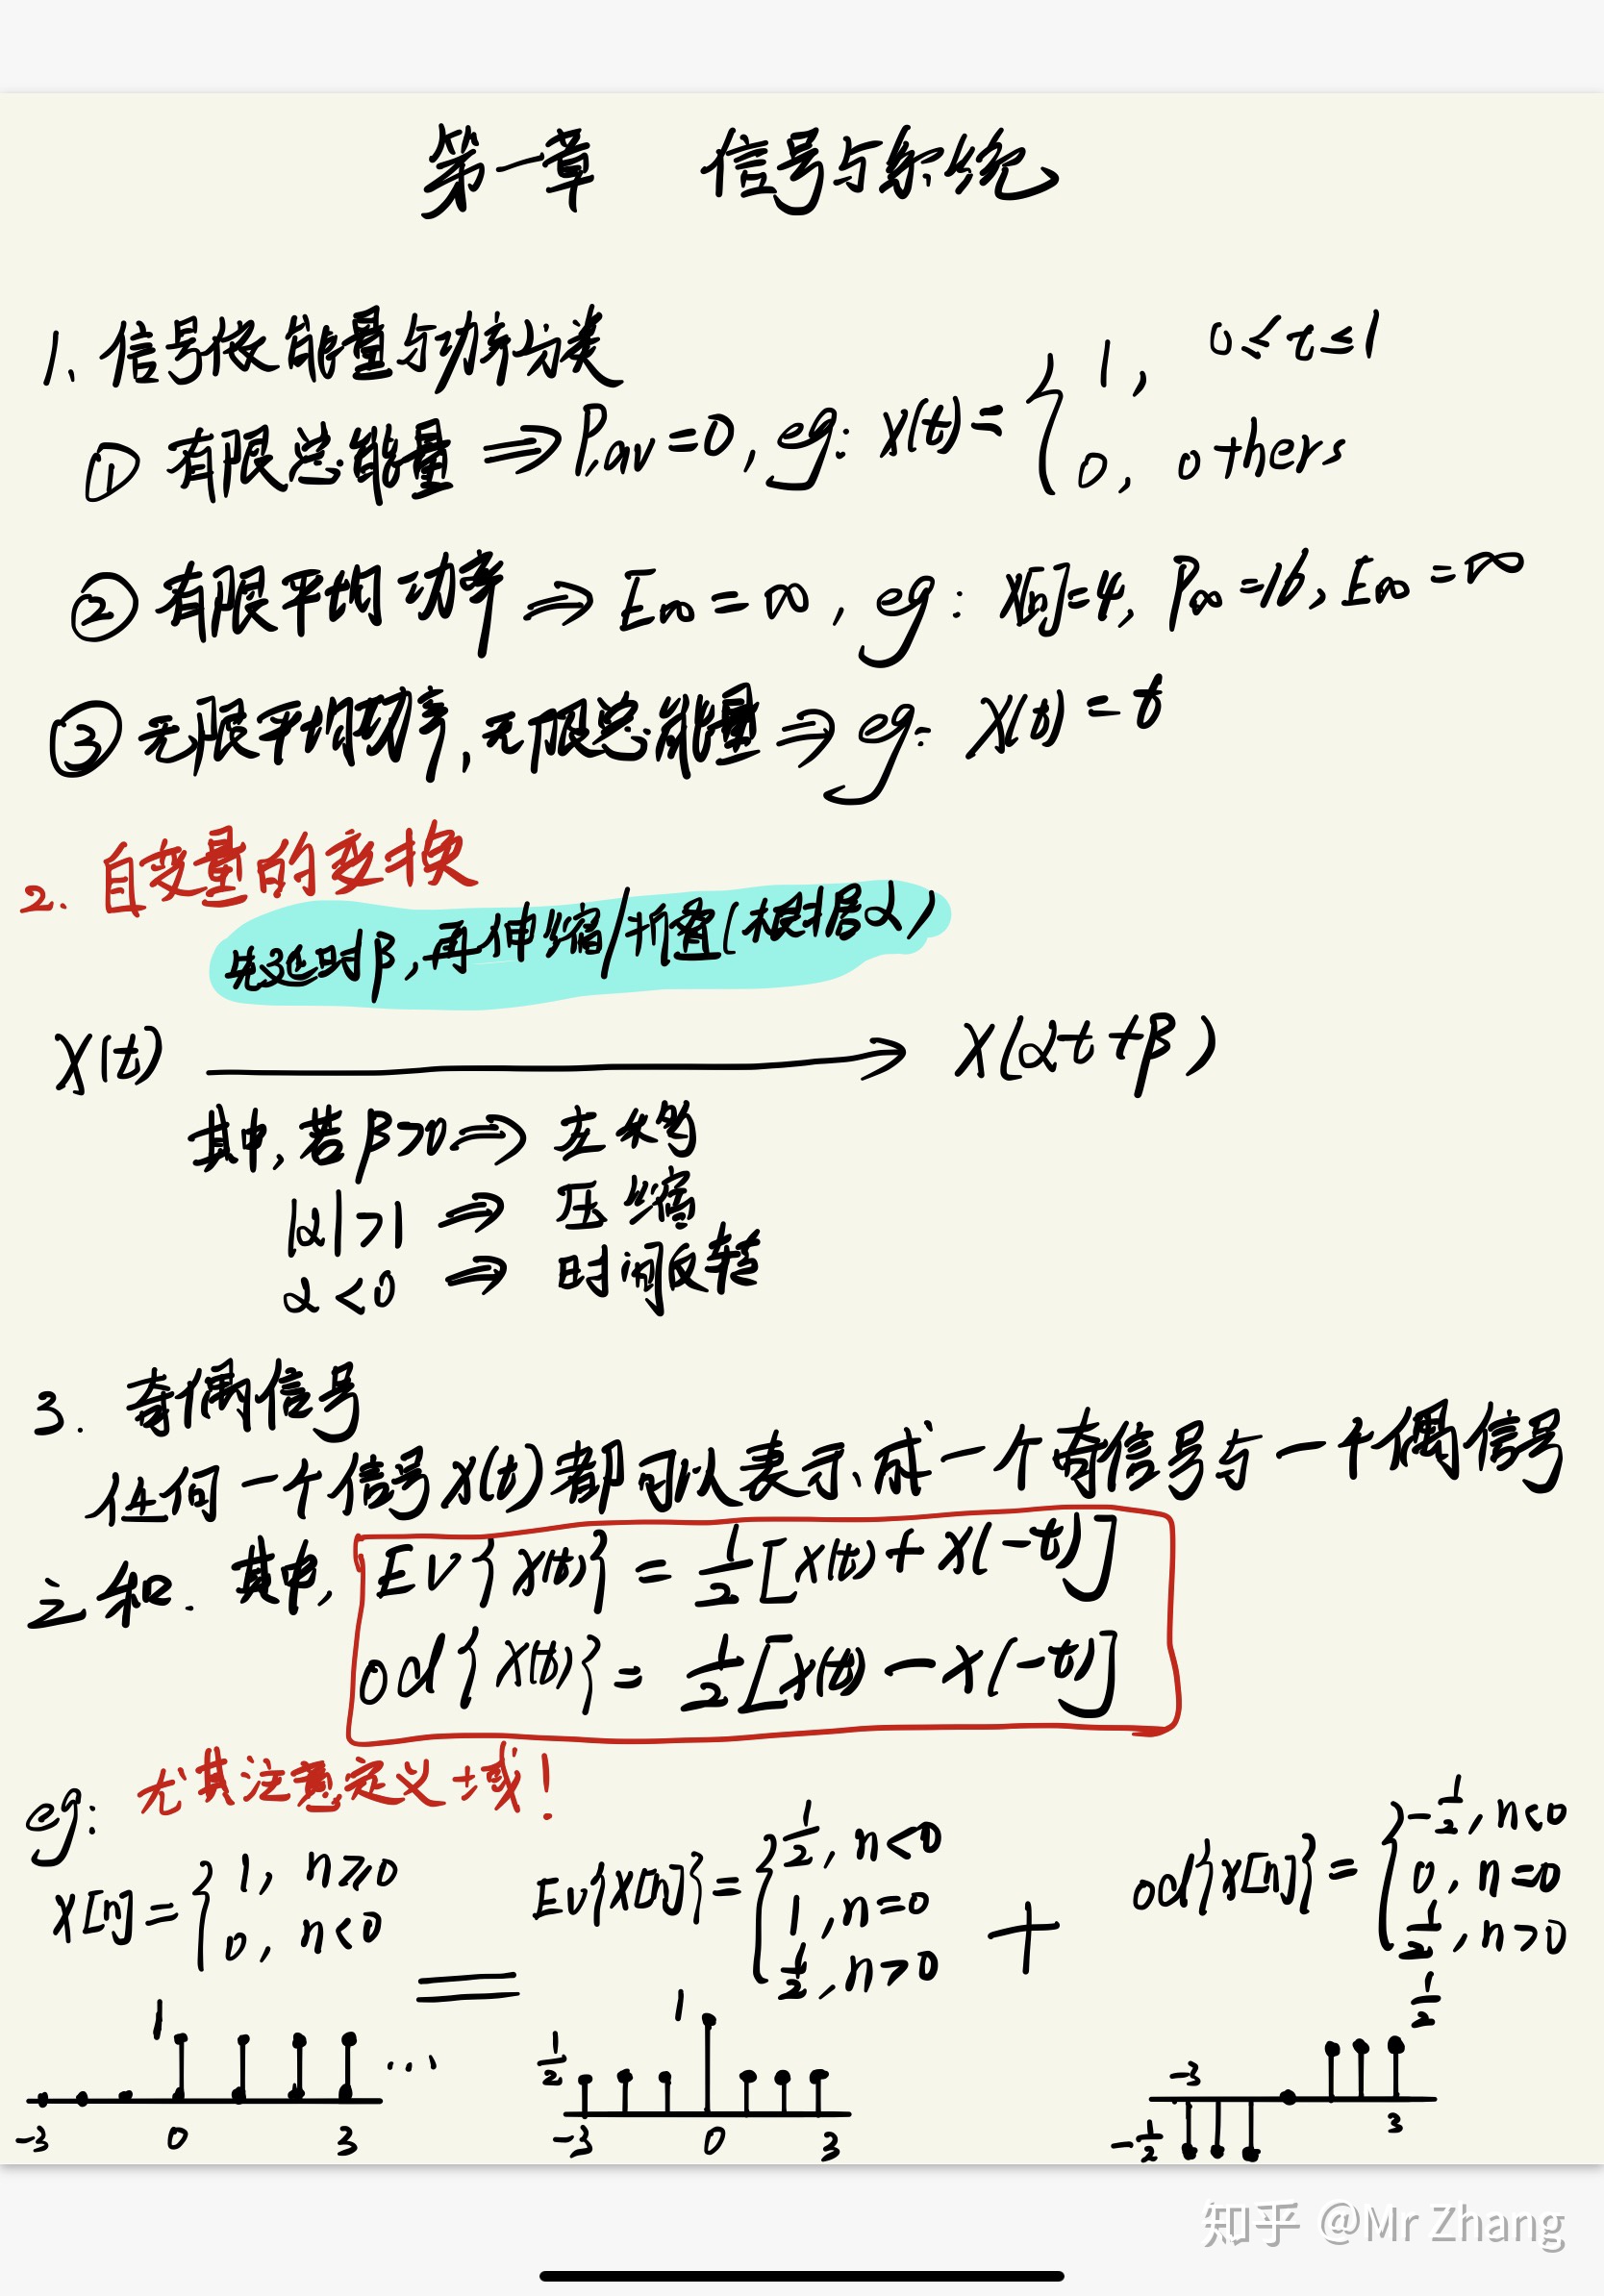 第一章 信号与系统
1、信号依能量与功率分类
① 有限总能量 ⇒ Pav=0, eg: x(t)= { 1, 0≤t≤1
0, others
② 有限平均功率 ⇒ E∞=∞, eg: x[n]=4, P∞=16, E∞=∞
③ 无限平均功率,无限总能量 ⇒ eg: x(t)=t
2. 自变量的变换
先延时β,再伸缩/折叠(根据α)
x(t) → x(αt+β)
其中,若β>0 ⇒ 左移
|α|>1 ⇒ 压缩
α<0 ⇒ 时间反转
3. 奇偶信号
任何一个信号x(t)都可以表示成一个奇信号与一个偶信号
之和. 其中, Ev{x(t)} = 1/2[x(t)+x(-t)]
od{x(t)} = 1/2[x(t)-x(-t)]
eg: 尤其注意定义域!
x[n]= { 1, n≥0
0, n<0
=
Ev{x[n]}= { 1/2, n<0
1, n=0
1/2, n>0
+
od{x[n]}= { -1/2, n<0
0, n=0
1/2, n>0
1 ...
-3 0 3
1/2 1
-3 0 3
1/2
-3
-1/2 3
知乎 @Mr Zhang